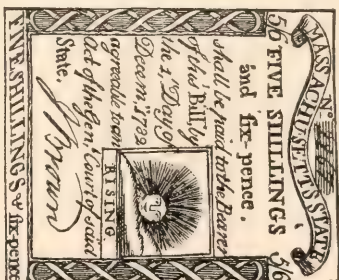 MASSACHUSETTS STATE
No.
56 FIVE SHILLINGS 56
and six-pence.
shall be paid to the Bearer
of this Bill by
the 1, Day of
Decem'r. 1782
agreeable to an
Act of the Gen. Court of said
State.
RISING
J Brown
FIVE SHILLINGS & six-pence